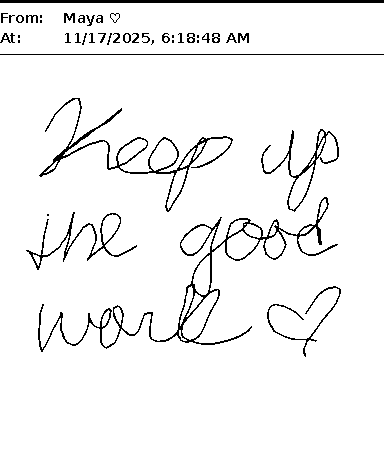 From: Maya ♡
At: 11/17/2025, 6:18:48 AM
Keep up
the good
work ♡